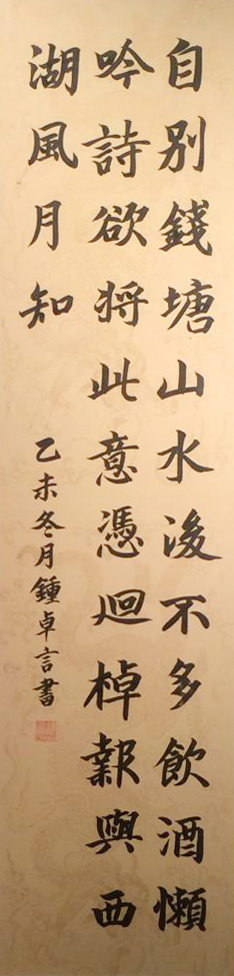 自别錢塘山水後不多飲酒懶
吟詩欲將此意憑迴棹報與西
湖風月知
乙未冬月鍾卓言書